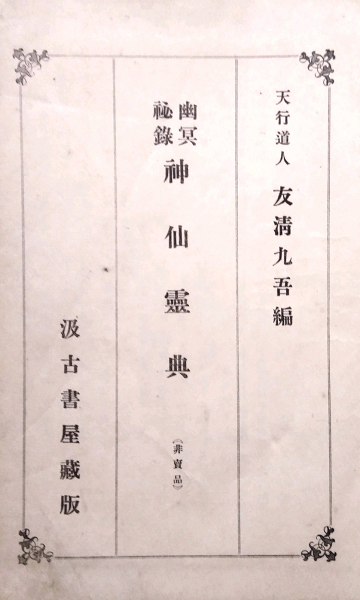 天行道人 友清九吾編
幽冥祕錄 神仙靈典 (非賣品)
汲古書屋藏版